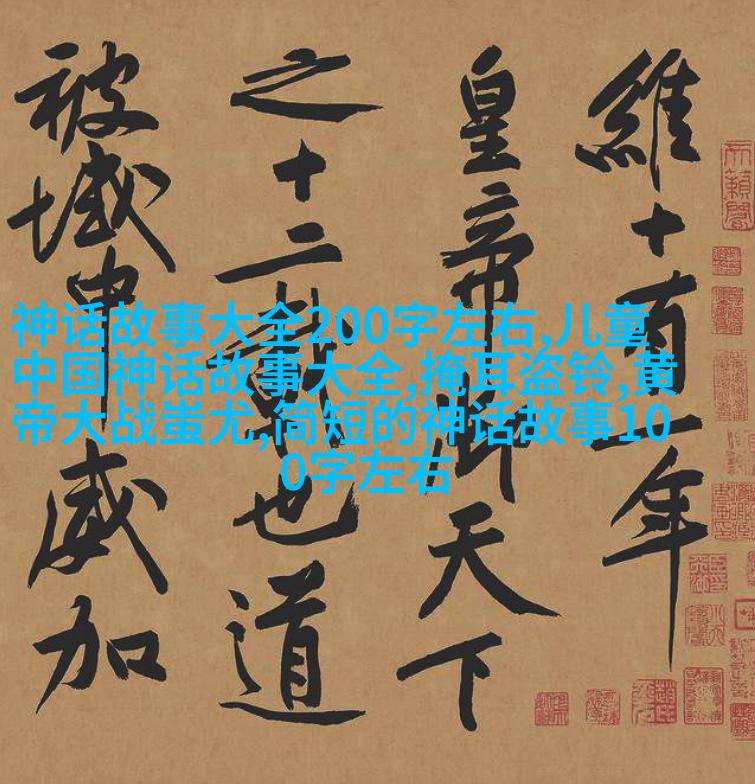 維十有一年
皇帝御天下
之十二載也道
被域中威加
神话故事大全200字左右,儿童
中国神话故事大全,掩耳盗铃,黄
帝大战蚩尤,简短的神话故事10
0字左右